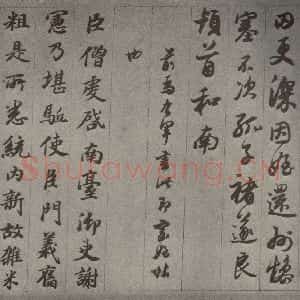 因更深因姪還州慥
塞不次孤子褚遂良
頓首和南
前爲右軍書法即家姪帖
也
臣僧虔啓南臺御史謝
憲乃堪驅使臣門義舊
粗是所悉統内新故雜米
Shufawang.CN